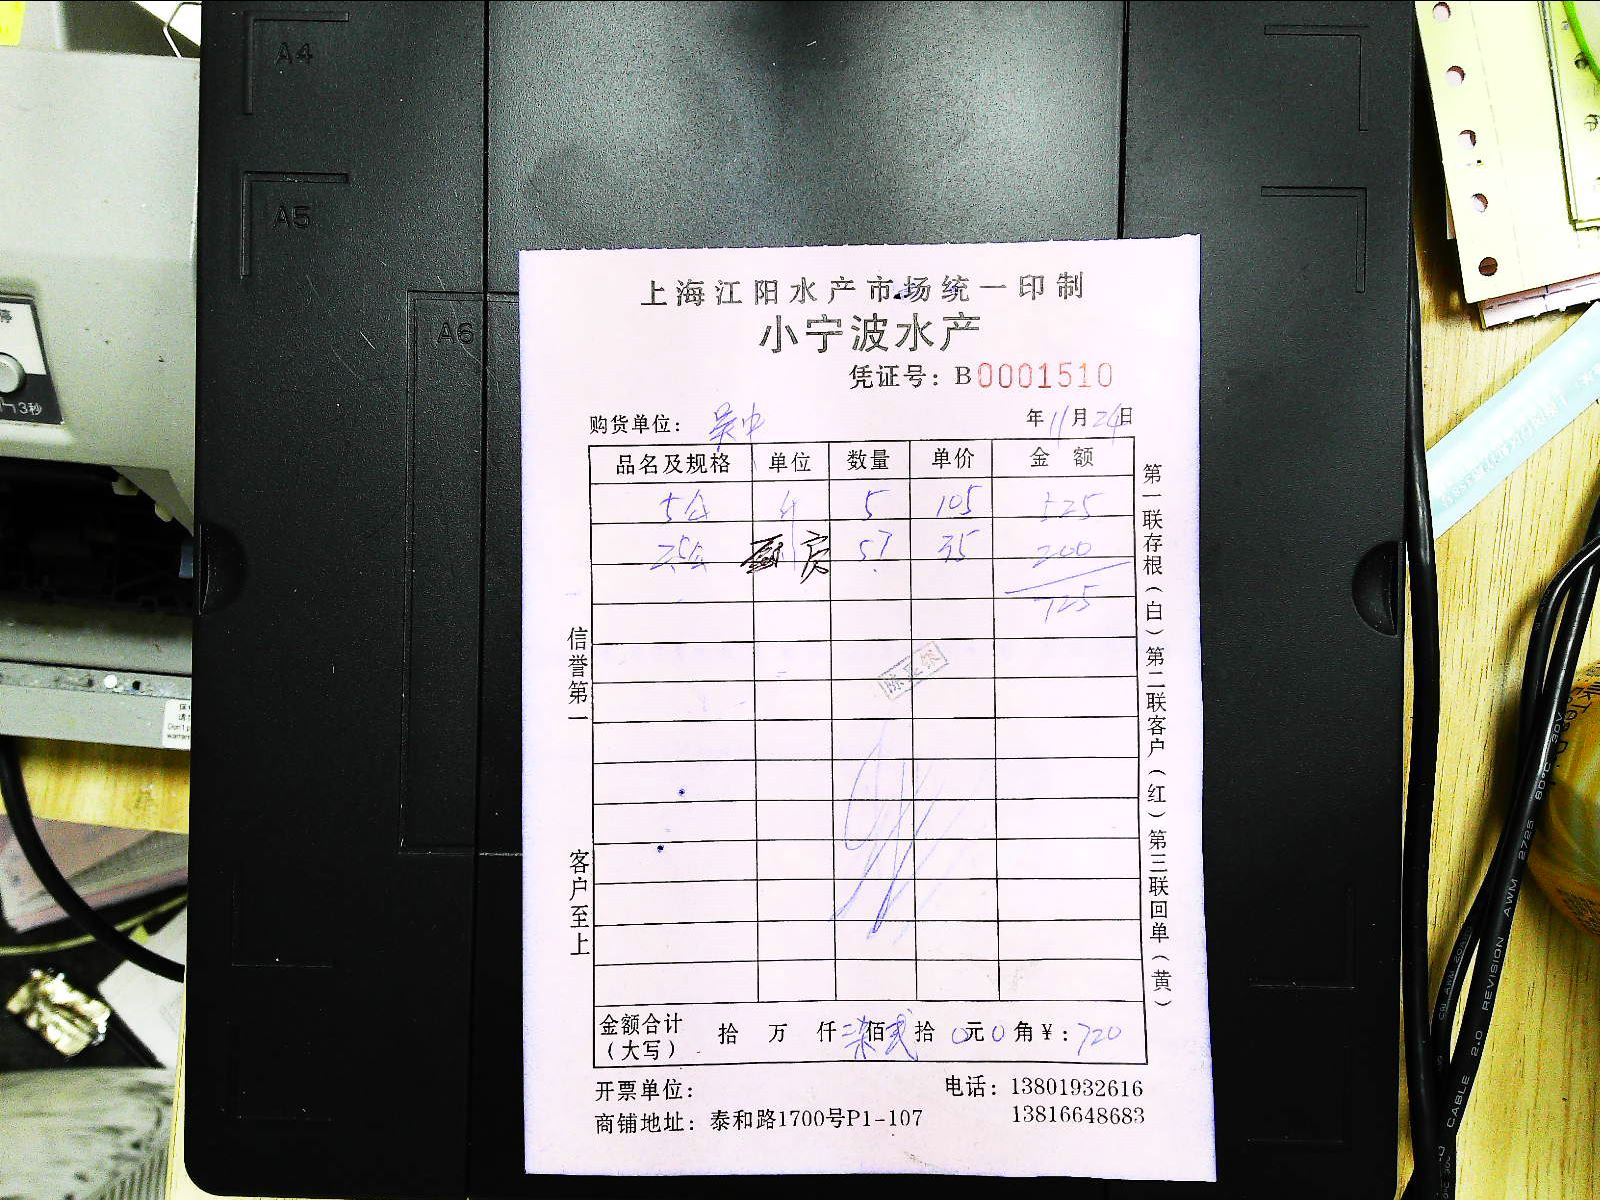 A4
A5
A6
3秒
上海江阳水产市场统一印制
小宁波水产
凭证号：B0001510
购货单位：吴中 年11月24日
品名及规格 单位 数量 单价 金额
5 105 525
厨房 57 35 200
725
信誉第一
客户至上
第一联存根（白）第二联客户（红）第三联回单（黄）
金额合计（大写） 拾 万 仟 柒佰贰拾0元0角￥：720
开票单位： 电话：13801932616
商铺地址：泰和路1700号P1-107 13816648683
CABLE 2.0 REVISION AWM 2725 80°C 30V